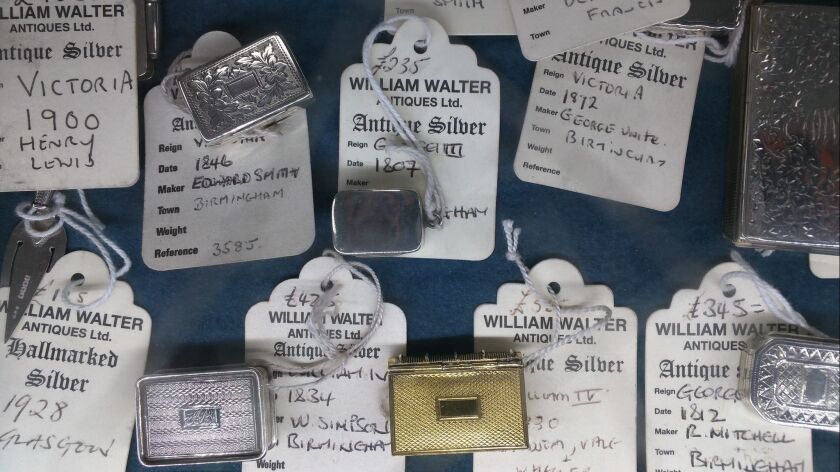 WILLIAM WALTER
ANTIQUES Ltd.
Antique Silver
VICTORIA
1900
HENRY
LEWIS
Reign
Date 1846
Maker EDWARD SMITH
Town BIRMINGHAM
Weight
Reference 3585.
£235
WILLIAM WALTER
ANTIQUES Ltd.
Antique Silver
Reign III
Date 1807
Maker
SMITH
Maker
Town
FRANCIS
Antique Silver
Reign VICTORIA
Date 1872
Maker GEORGE UNITE.
Town
Weight
Reference
WILLIAM WALTER
ANTIQUES Ltd.
Hallmarked
Silver
1928
GLASGOW
WILLIAM WALTER
ANTIQUES Ltd.
Antique Silver
1834
W. SIMPSON
BIRMINGHAM
Weight
WILLIAM WALTER
ANTIQUES Ltd.
Antique Silver
IV
VALE
£345=
WILLIAM WALTER
ANTIQUES
Antique
Reign GEORGE
Date 1812
Maker R. MITCHELL
Town BIRMINGHAM
Weight